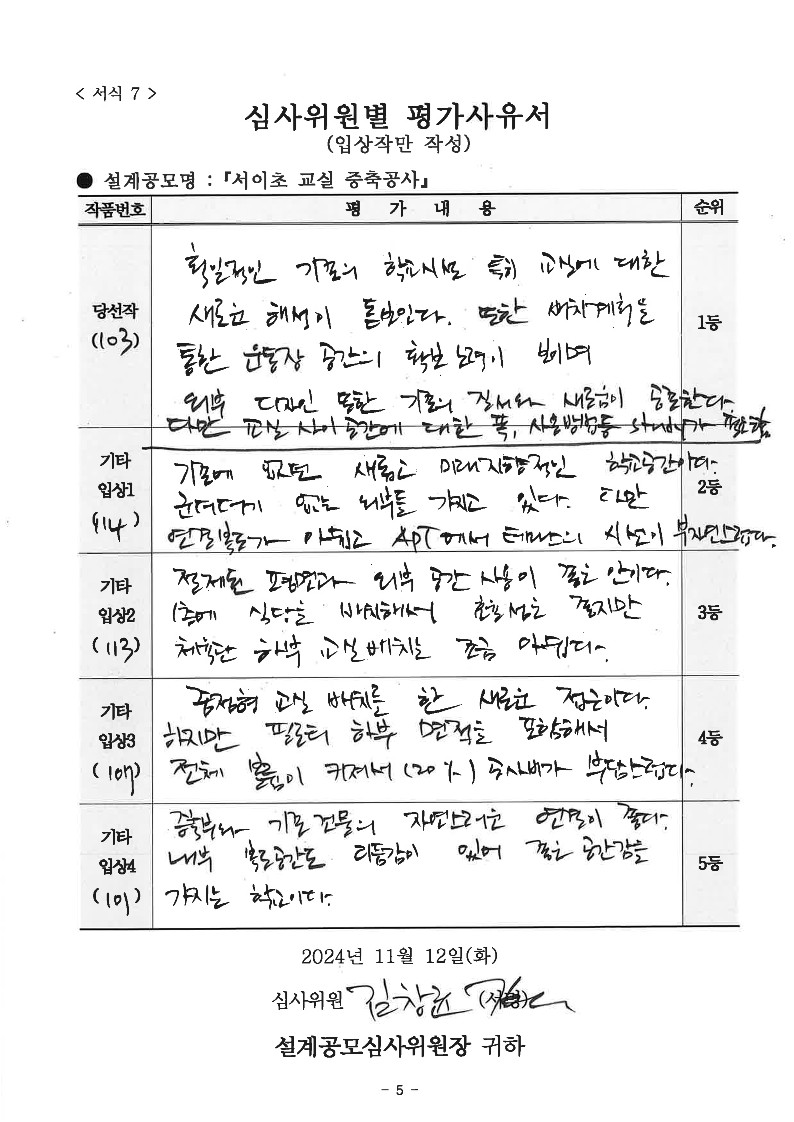 < 서식 7 >
심사위원별 평가사유서
(입상작만 작성)
● 설계공모명 : 『서이초 교실 증축공사』
작품번호 평 가 내 용 순위
당선작
(103)
획일적인 기존의 학교시설 특히 교실에 대한
새로운 해석이 돋보인다. 또한 배치계획을
통한 운동장 공간의 확보 노력이 보이며
외부 디자인 또한 기존의 질서와 새로움이 공존한다.
다만 교실 사이공간에 대한 폭, 사용방법등 study가 필요함
1등
기타
입상1
(114)
기존에 없던 새롭고 미래지향적인 학교공간이다.
군더더기 없는 외부를 가지고 있다. 다만
연결복도가 아쉽고 APT에서 테라스의 시선이 부자연스럽다.
2등
기타
입상2
(113)
절제된 표현과 외부 공간 사용이 좋은 안이다.
1층에 식당을 배치해서 효율성은 좋지만
체육관 하부 교실배치는 조금 아쉽다.
3등
기타
입상3
(107)
중정형 교실 배치를 한 새로운 접근이다.
하지만 필로티 하부 면적을 포함해서
전체 볼륨이 커져서 (20%) 공사비가 부담스럽다.
4등
기타
입상4
(101)
증축부와 기존 건물의 자연스러운 연결이 좋다.
내부 복도공간도 리듬감이 있어 좋은 공간감을
가지는 학교이다.
5등
2024년 11월 12일(화)
심사위원 김창균 (서명)
설계공모심사위원장 귀하
- 5 -